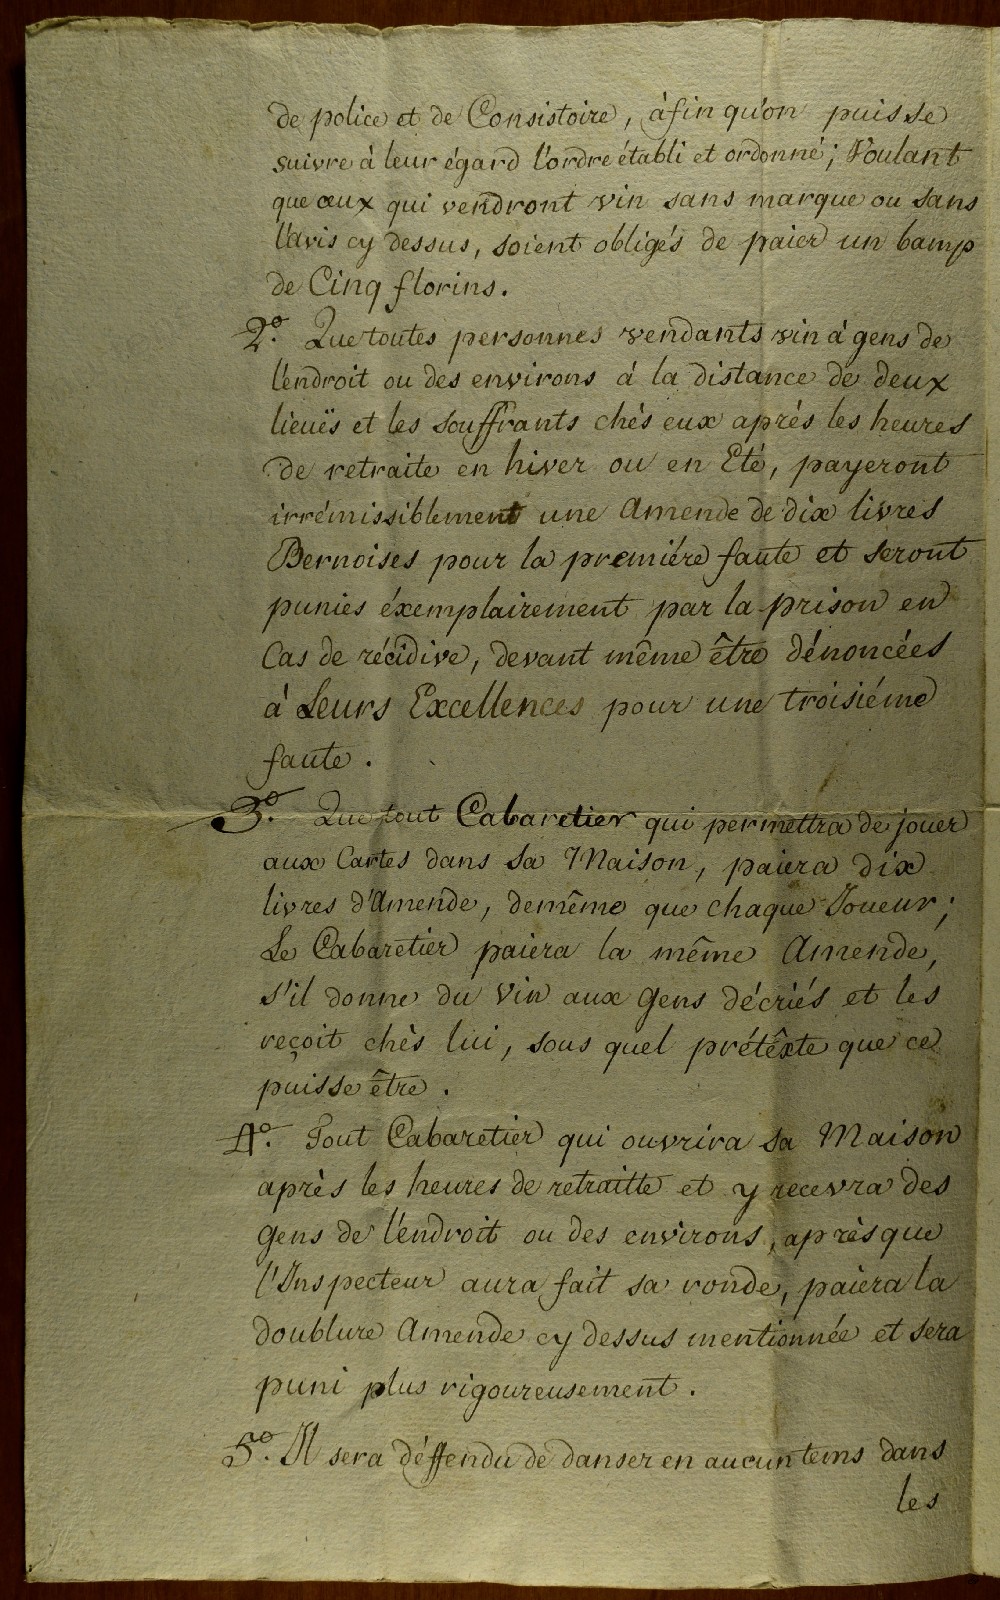 de police et de Consistoire, àfin qu'on puisse
suivre à leur égard l'ordre établi et ordonné; Voulant
que ceux qui vendront vin sans marque ou sans
l'avis cy dessus, soient obligés de paier un bamp
de Cinq florins.
2.° Que toutes personnes vendants vin à gens de
l'endroit ou des environs à la distance de deux
lieuës et les souffrants chés eux après les heures
de retraite en hiver ou en Eté, payeront
irrémissiblement une Amende de dix livres
Bernoises pour la premiére faute et seront
punies éxemplairement par la prison en
Cas de récidive, devant même être dénoncées
à Leurs Excellences pour une troisiéme
faute.
3.° Que tout Cabaretier qui permettra de jouer
aux Cartes dans sa Maison, paiera dix
livres d'Amende, demême que chaque Joueur;
Le Cabaretier paiera la même Amende,
s'il donne du Vin aux Gens décriés et les
reçoit chès lui, sous quel prétêxte que ce
puisse être.
4.° Tout Cabaretier qui ouvrira sa Maison
après les heures de retraitte et y recevra des
Gens de l'éndroit ou des environs, après que
l'Inspecteur aura fait sa ronde, paiera la
doublure Amende cy dessus mentionnée et sera
puni plus rigoureusement.
5.° Il sera déffendu de danser en aucun tems dans
les